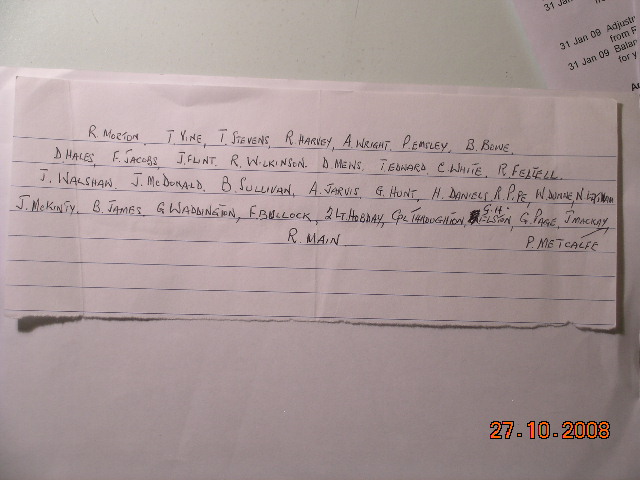 31 Jan 09
31 Jan 09 Adjustm
from R
31 Jan 09 Balan
for y
R. MORTON, T. VINE, T. STEVENS, R. HARVEY, A. WRIGHT, P. EMSLEY, B. BOWE,
D. HALES, F. JACOBS, J. FLINT, R. WILKINSON, D. MEWS, T. EDWARD, C. WHITE, R. FELTELL.
J. WALSHAN, J. McDONALD, B. SULLIVAN, A. JARVIS, G. HUNT, H. DANIELS, R. PIPE, W. DUNNE, N.
J. McKINTY, B. JAMES, G. WADDINGTON, F. BULLOCK, 2 LT. HOBDAY, CPL THROUGHTON, G.H. ELSTON, G. PAGE, J. MACKAY,
R. MAIN P. METCALFE
27.10.2008